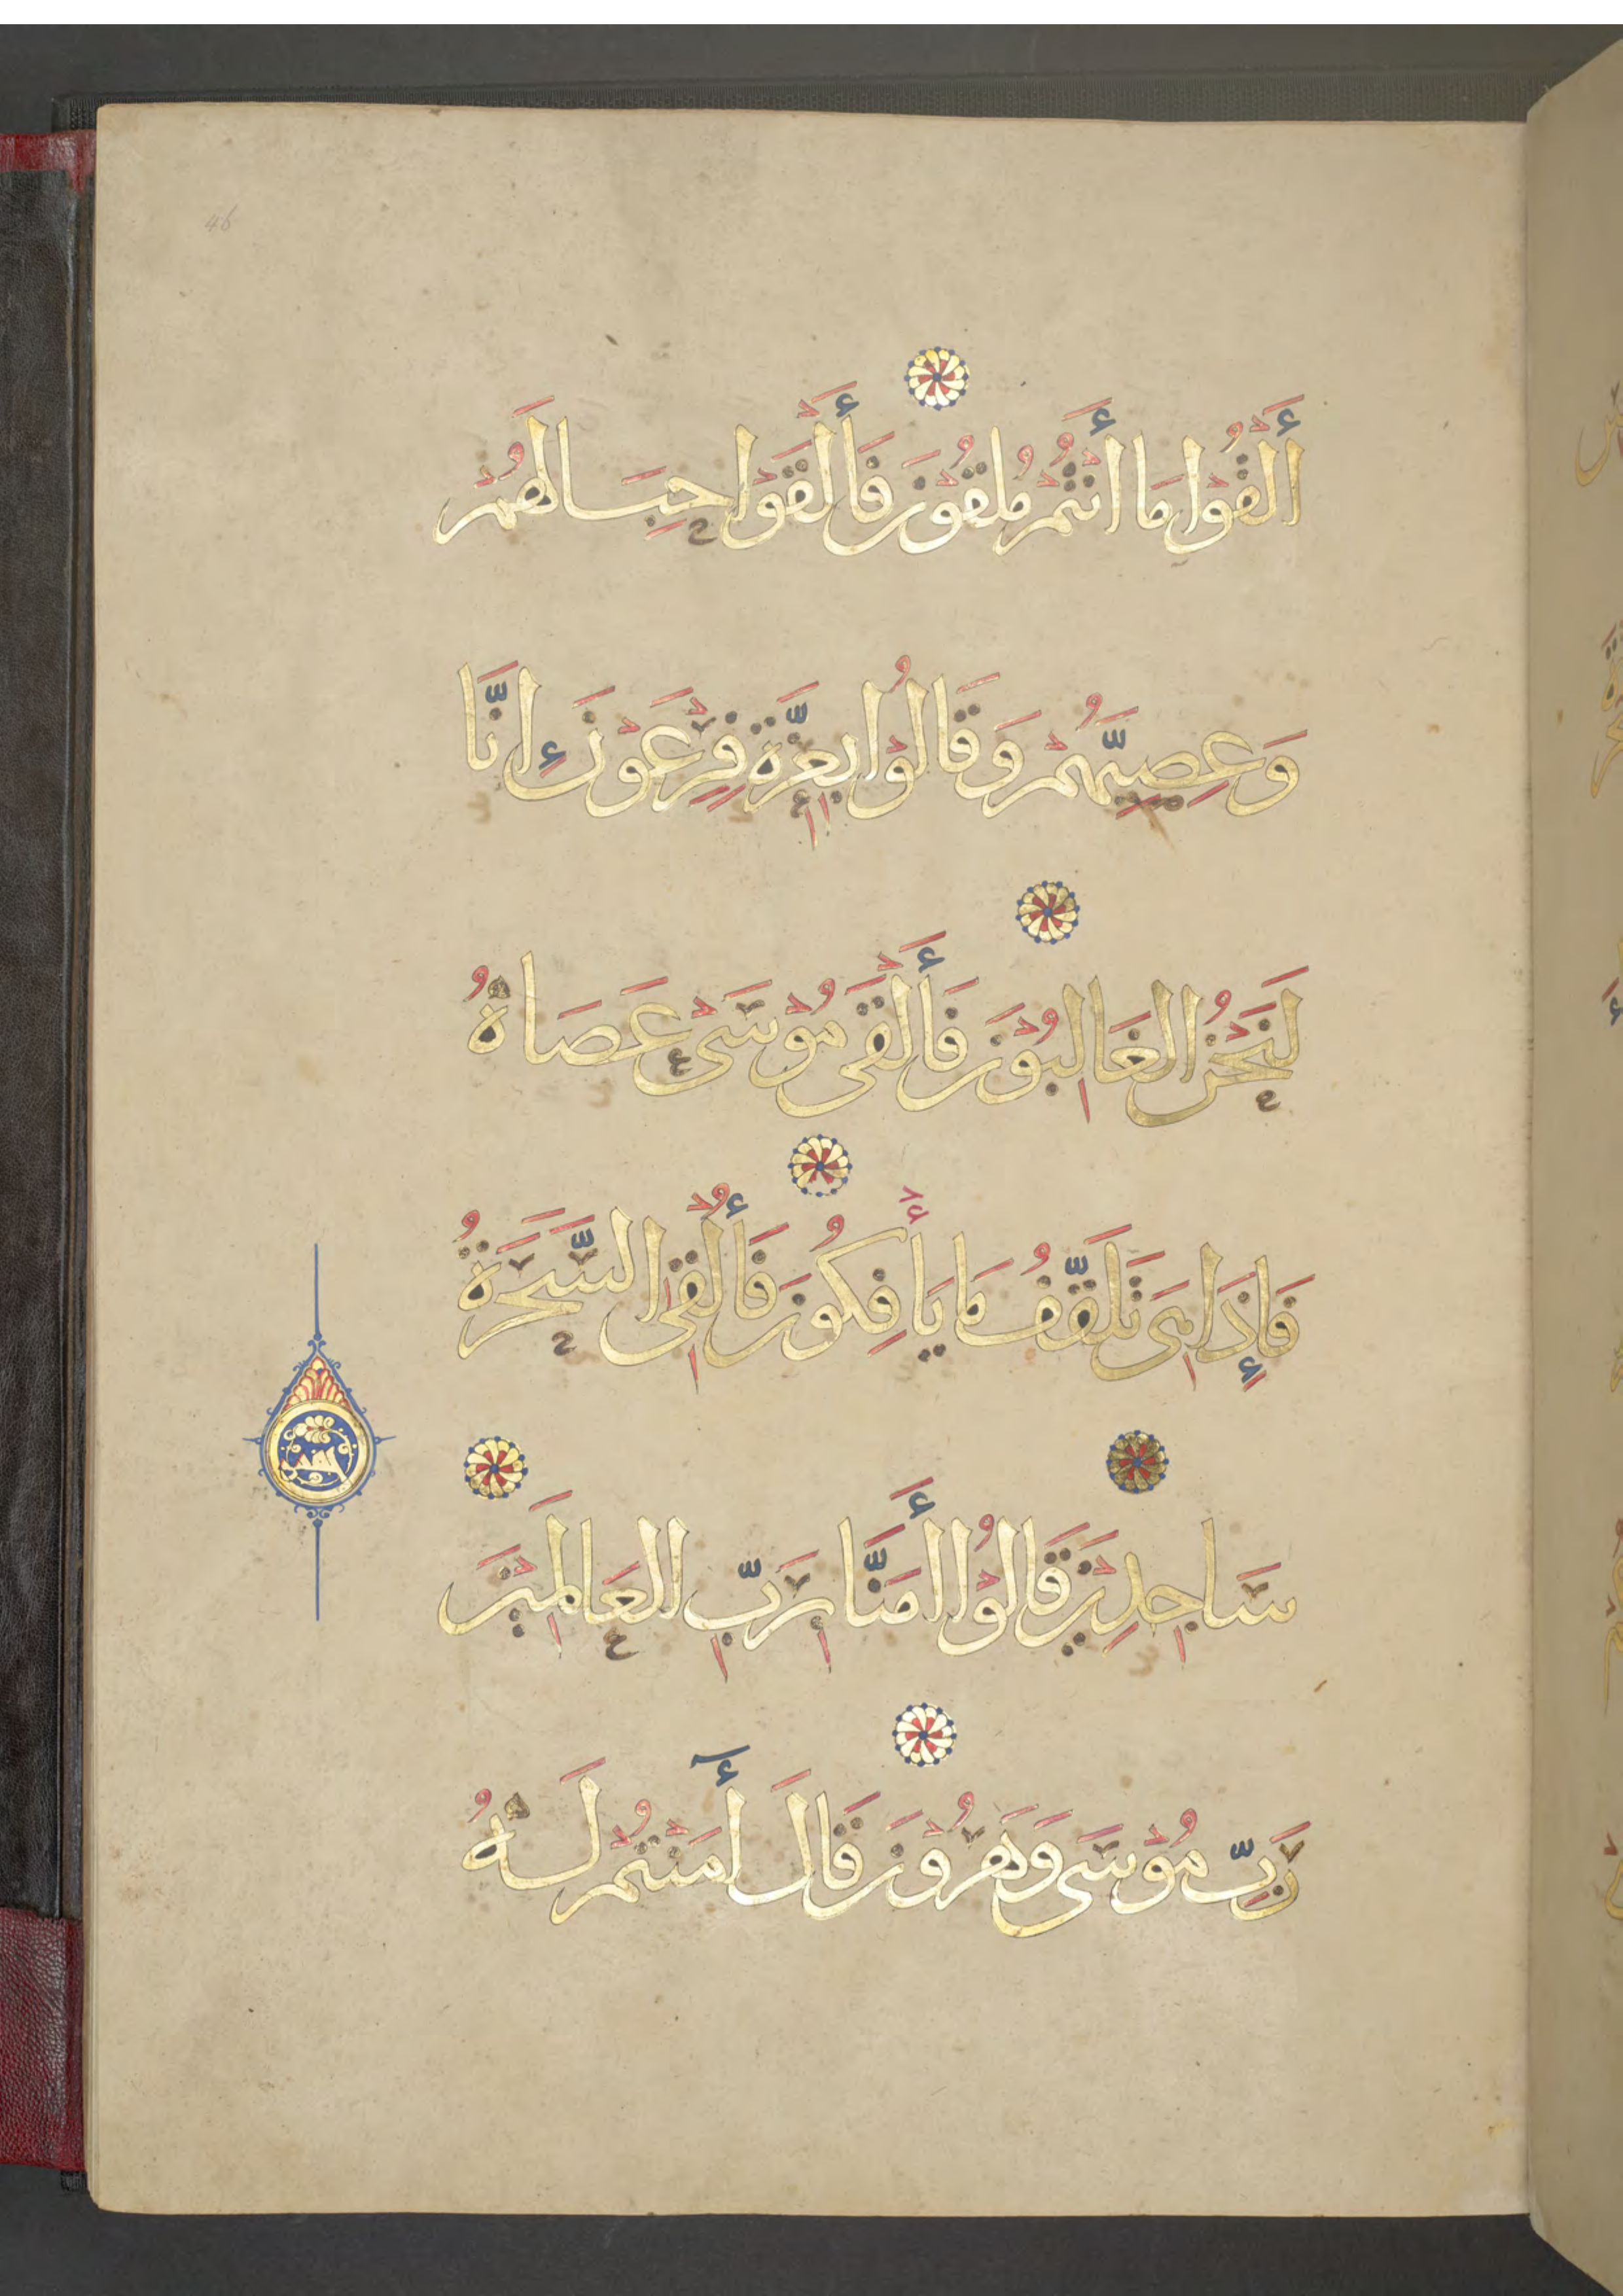 46
أَلْقُوْا مَا أَنْتُمْ مُلْقُوْنَ فَأَلْقَوْا حِبَالَهُمْ
وَعِصِيَّهُمْ وَقَالُوْا بِعِزَّةِ فِرْعَوْنَ إِنَّا
لَنَحْنُ الغَالِبُوْنَ فَأَلْقَى مُوْسَىْ عَصَاهُ
فَإِذَا هِىَ تَلَقَّفُ مَا يَأْفِكُوْنَ فَأُلْقِىَ السَّحَرَةُ
سَاجِدِيْنَ قَالُوْا أَمَنَّا بِرَبِّ العَالَمِيْنَ
رَبِّ مُوْسَى وَهَرُوْنَ قَالَ أَٓمَنْتُمْ لَهُ